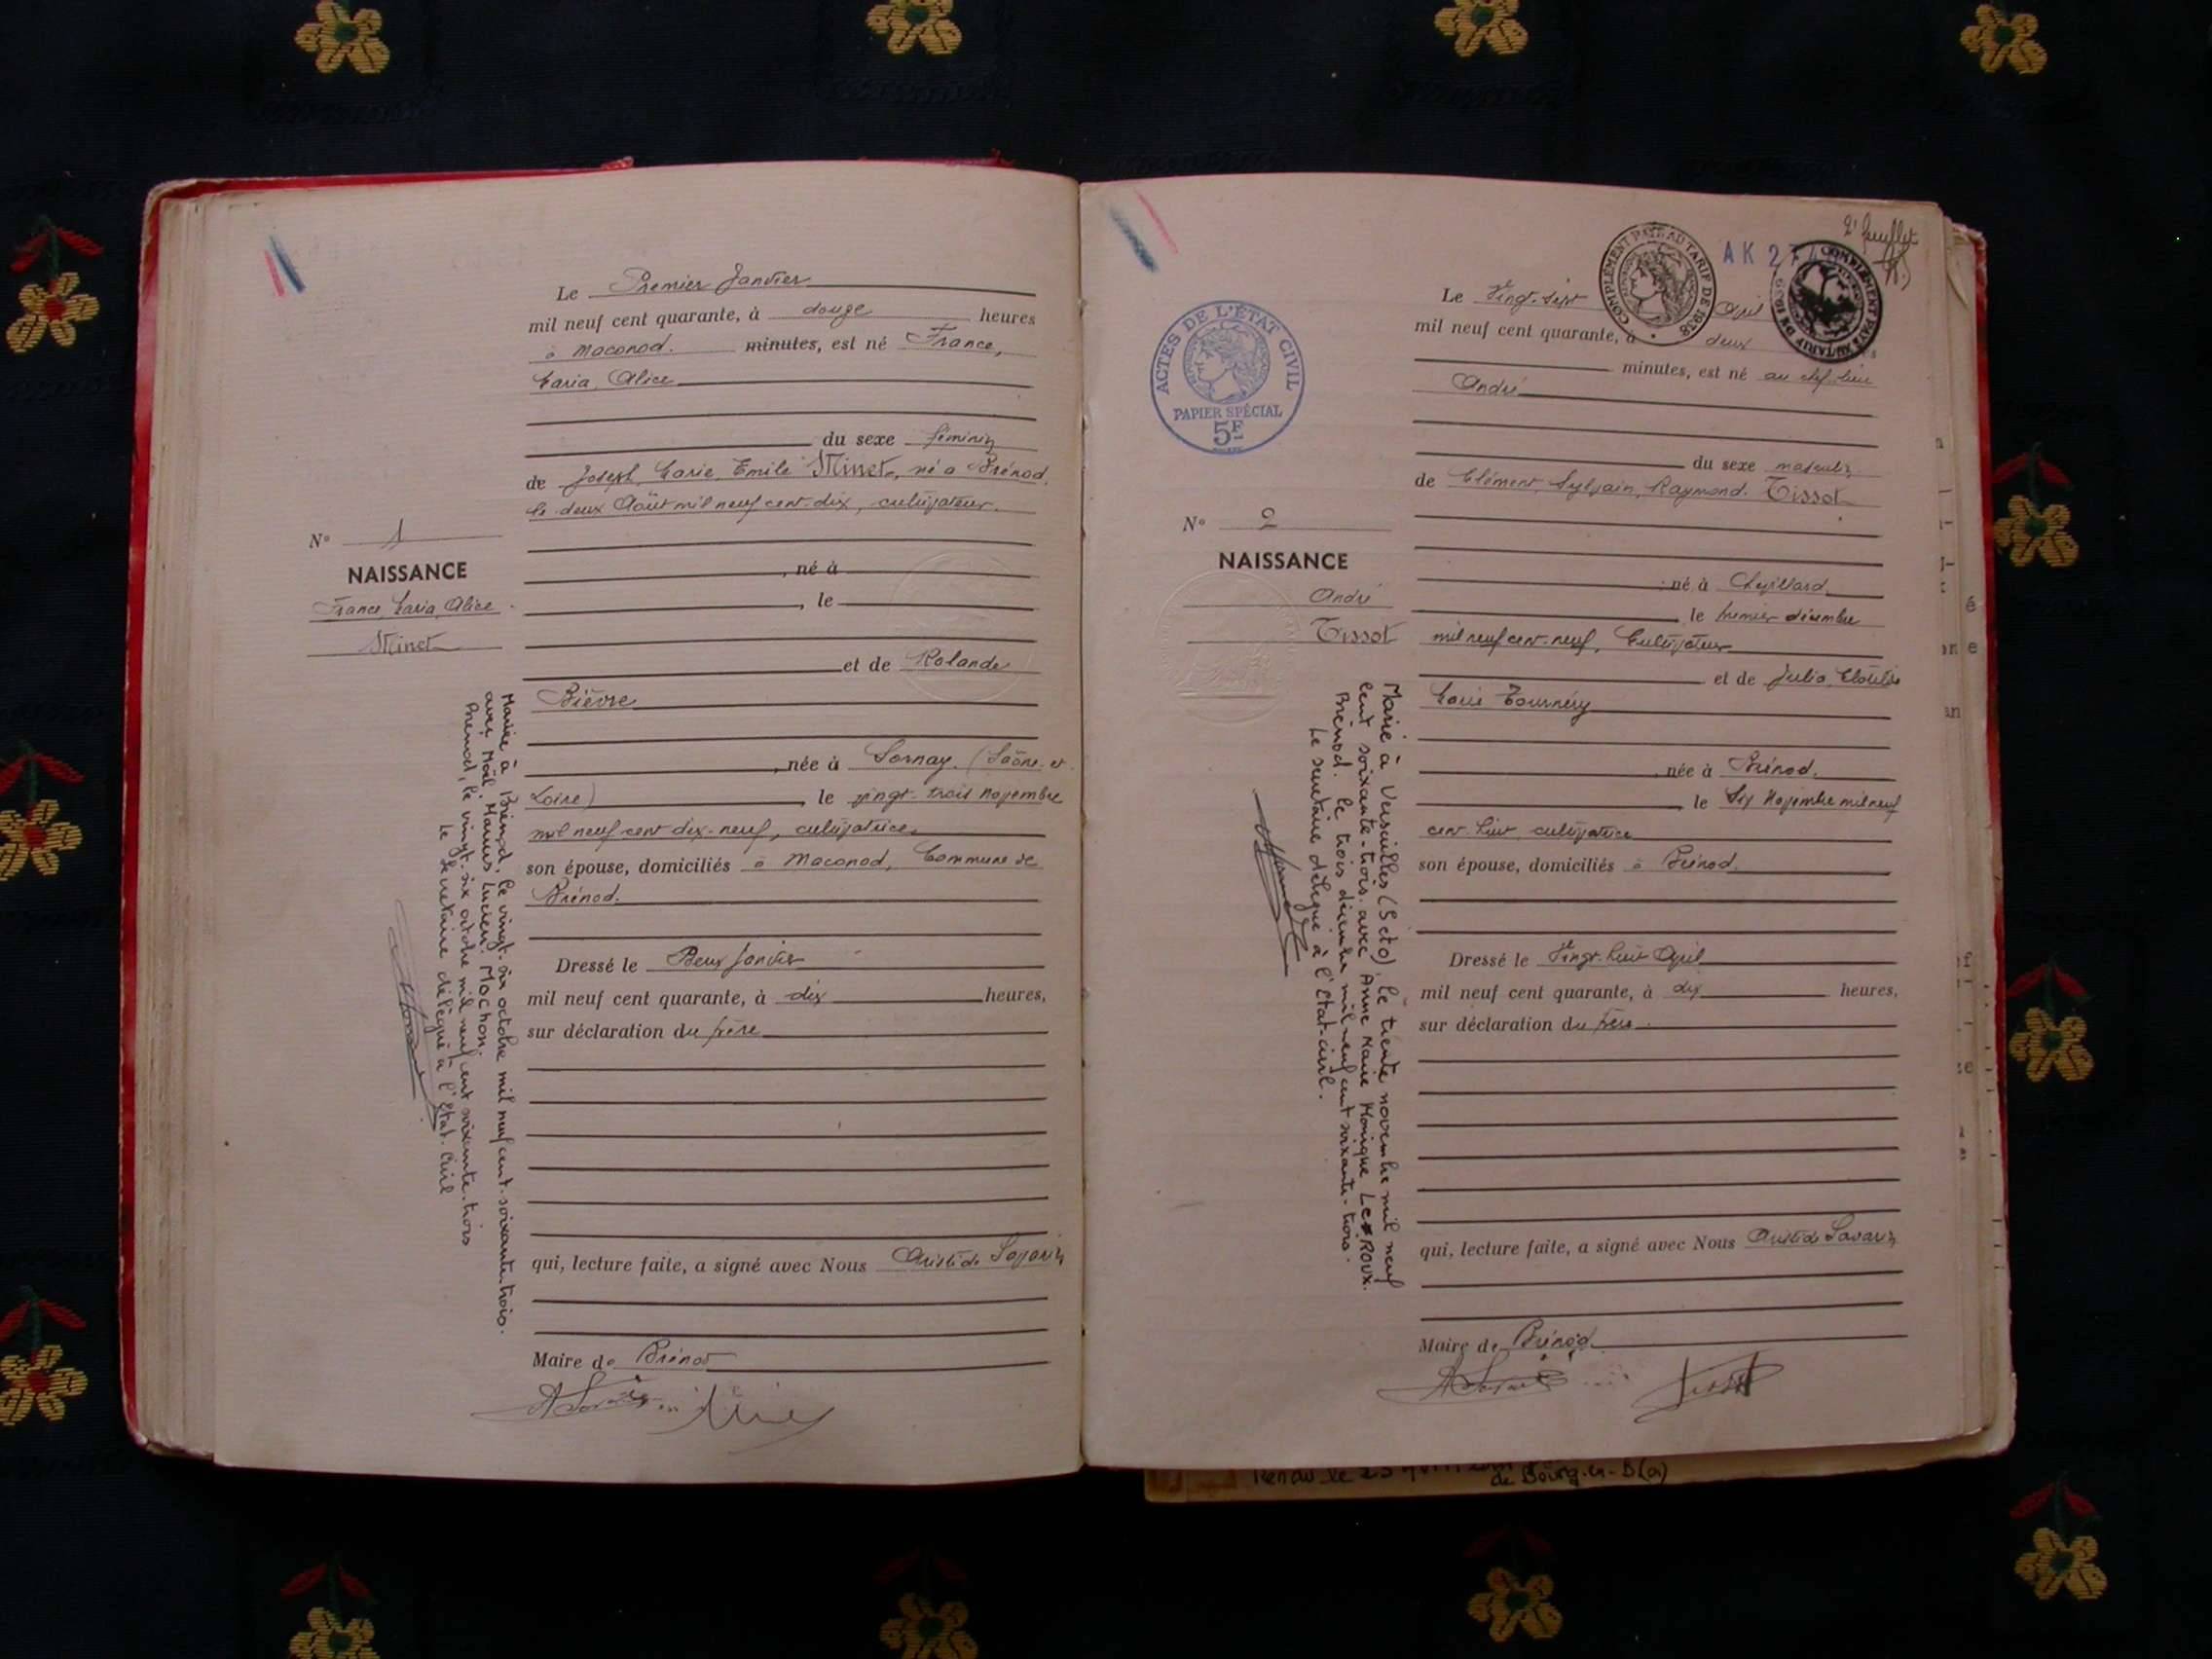 Le Premier Janvier
mil neuf cent quarante, à douze heures
à Maconod. minutes, est né France,
Maria, Alice
du sexe féminin
de Joseph, Marie, Emile Minet, né à Brénod,
le deux Août mil neuf cent dix, cultivateur.
N° 1
NAISSANCE
France, Maria, Alice
Minet
, né à
, le
et de Rolande
Bièvre
, née à Sornay. (Saône-et-
Loire) , le vingt-trois Novembre
mil neuf cent dix-neuf, cultivatrice,
son épouse, domiciliés à Maconod, Commune de
Brénod.
Dressé le Deux Janvier
mil neuf cent quarante, à dix heures,
sur déclaration du père
qui, lecture faite, a signé avec Nous Aristide Savarin
Maire de Brénod
Mariée à Brénod, le vingt-six octobre mil neuf cent soixante-trois.
avec Noël Marius Lucien MOCHON.
Brénod, le vingt-six octobre mil neuf cent soixante-trois
Le Secrétaire délégué à l'Etat-Civil
2e feuillet
AK 27
COMPLÉMENT PAYÉ AU TARIF DE 1938
COMPLÉMENT PAYÉ AU TARIF DE 1939
ACTES DE L'ÉTAT CIVIL
PAPIER SPÉCIAL
5F
Le Vingt-sept Avril
mil neuf cent quarante, à deux
minutes, est né au chef-lieu
André
du sexe masculin
de Clément, Sylvain, Raymond. Tissot
N° 2
NAISSANCE
André
Tissot
né à Chevillard
le premier décembre
mil neuf cent neuf, Cultivateur
et de Julia, Clotilde
Marie Tournéry
née à Brénod.
le Six Novembre mil neuf
cent huit, cultivatrice
son épouse, domiciliés à Brénod.
Dressé le Vingt-huit Avril
mil neuf cent quarante, à dix heures,
sur déclaration du père
qui, lecture faite, a signé avec Nous Aristide Savarin
Maire de Brénod
Tissot
Marié à Versailles (S et O), le trente novembre mil neuf
cent soixante-trois. avec Anne Marie Monique LE ROUX.
Brénod. le trois décembre mil neuf cent soixante-trois.
Le secrétaire délégué à l'Etat-civil.
Rendu le 25
de Bourg-en-B(01)